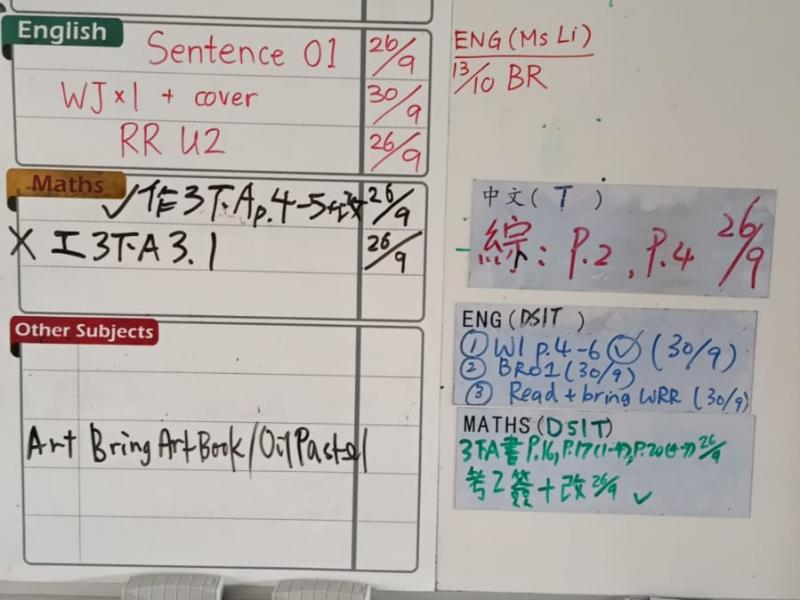 English
Sentence 01 26/9
WJ x1 + cover 30/9
RR U2 26/9
Maths
✓作3下A p.4-5 改 26/9
X 工3下A 3.1 26/9
Other Subjects
Art Bring Art Book/Oil Pastel
ENG (Ms Li)
13/10 BR
中文( T )
綜: P.2, P.4 26/9
ENG (DSIT )
① W1 p.4-6 ✓ (30/9)
② BR01 (30/9)
③ Read + bring WRR (30/9)
MATHS (DSIT)
3下A書 P.16, P.17(1-4), P.20 26/9
考2簽+改 26/9 ✓